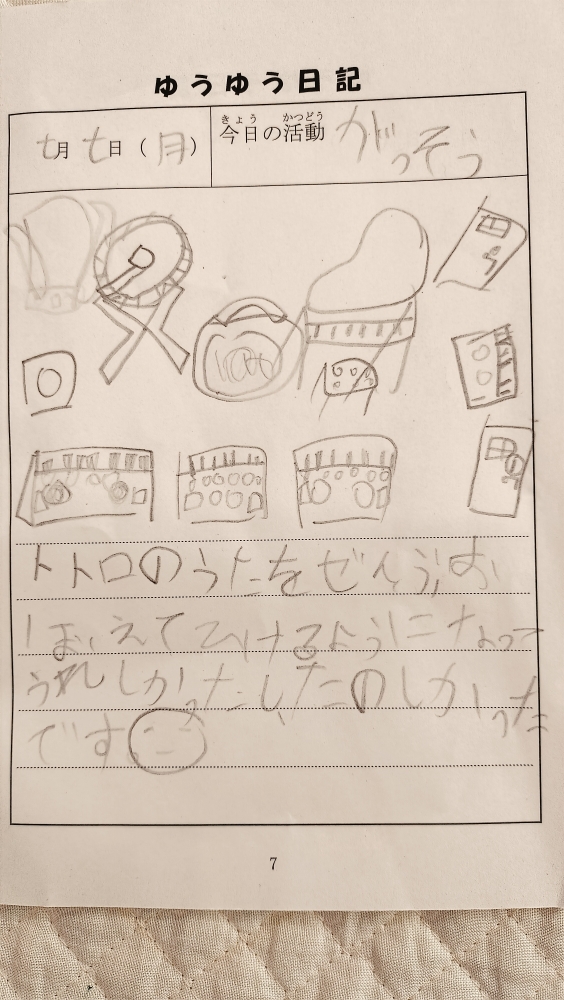 ゆうゆう日記
七月七日（月）
きょう かつどう
今日の活動 がっそう
トトロのうたをぜんぶお
ぼえてひけるようになって
うれしかったしたのしかった
です
7